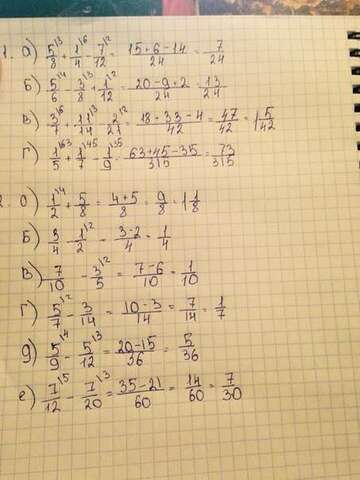 1. а) 5/8^\3 + 1/4^\6 - 7/12^\2 = (15+6-14)/24 = 7/24
Б) 5/6^\4 - 3/8^\3 + 1/12^\2 = (20-9+2)/24 = 13/24
В) 3/7^\6 + 11/14^\3 - 2/21^\2 = (18+33-4)/42 = 47/42 = 1 5/42
Г) 1/5^\63 + 1/7^\45 - 1/9^\35 = (63+45-35)/315 = 73/315
2. а) 1/2^\4 + 5/8 = (4+5)/8 = 9/8 = 1 1/8
Б) 3/4 - 1/2^\2 = (3-2)/4 = 1/4
В) 7/10 - 3/5^\2 = (7-6)/10 = 1/10
Г) 5/7^\2 - 3/14 = (10-3)/14 = 7/14 = 1/7
д) 5/9^\4 - 5/12^\3 = (20-15)/36 = 5/36
е) 7/12^\5 - 7/20^\3 = (35-21)/60 = 14/60 = 7/30